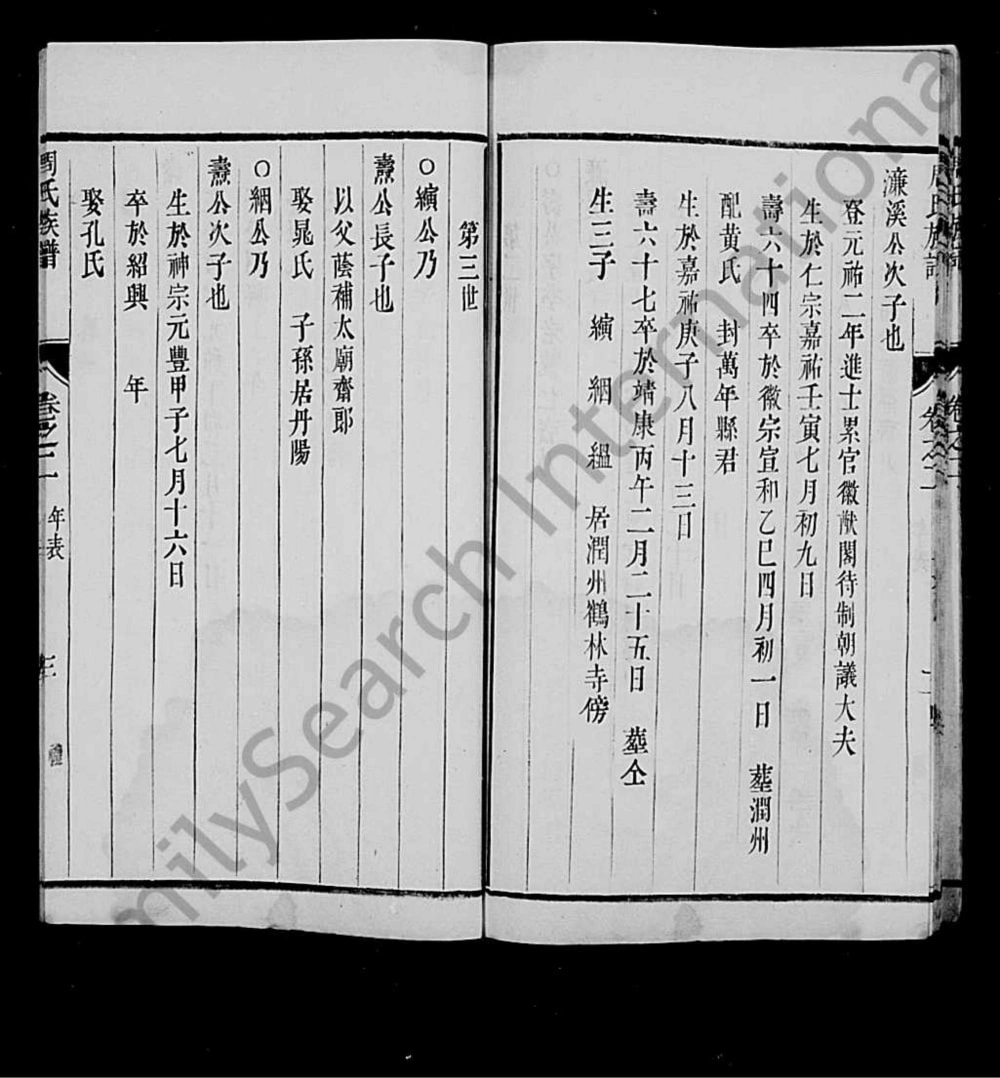 濂溪公次子也
登元祐二年進士累官徽猷閣待制朝議大夫
生於仁宗嘉祐壬寅七月初九日
壽六十四卒於徽宗宣和乙巳四月初一日 塟潤州
配黃氏 封萬年縣君
生於嘉祐庚子八月十三日
壽六十七卒於靖康丙午二月二十五日 塟仝
生三子 縯 絪 縕 居潤州鶴林寺傍
第三世
○縯公乃
燾公長子也
以父蔭補太廟齋郎
娶晁氏 子孫居丹陽
○絪公乃
燾公次子也
生於神宗元豐甲子七月十六日
卒於紹興 年
娶孔氏
周氏族譜 卷之二 年表 三
FamilySearch International